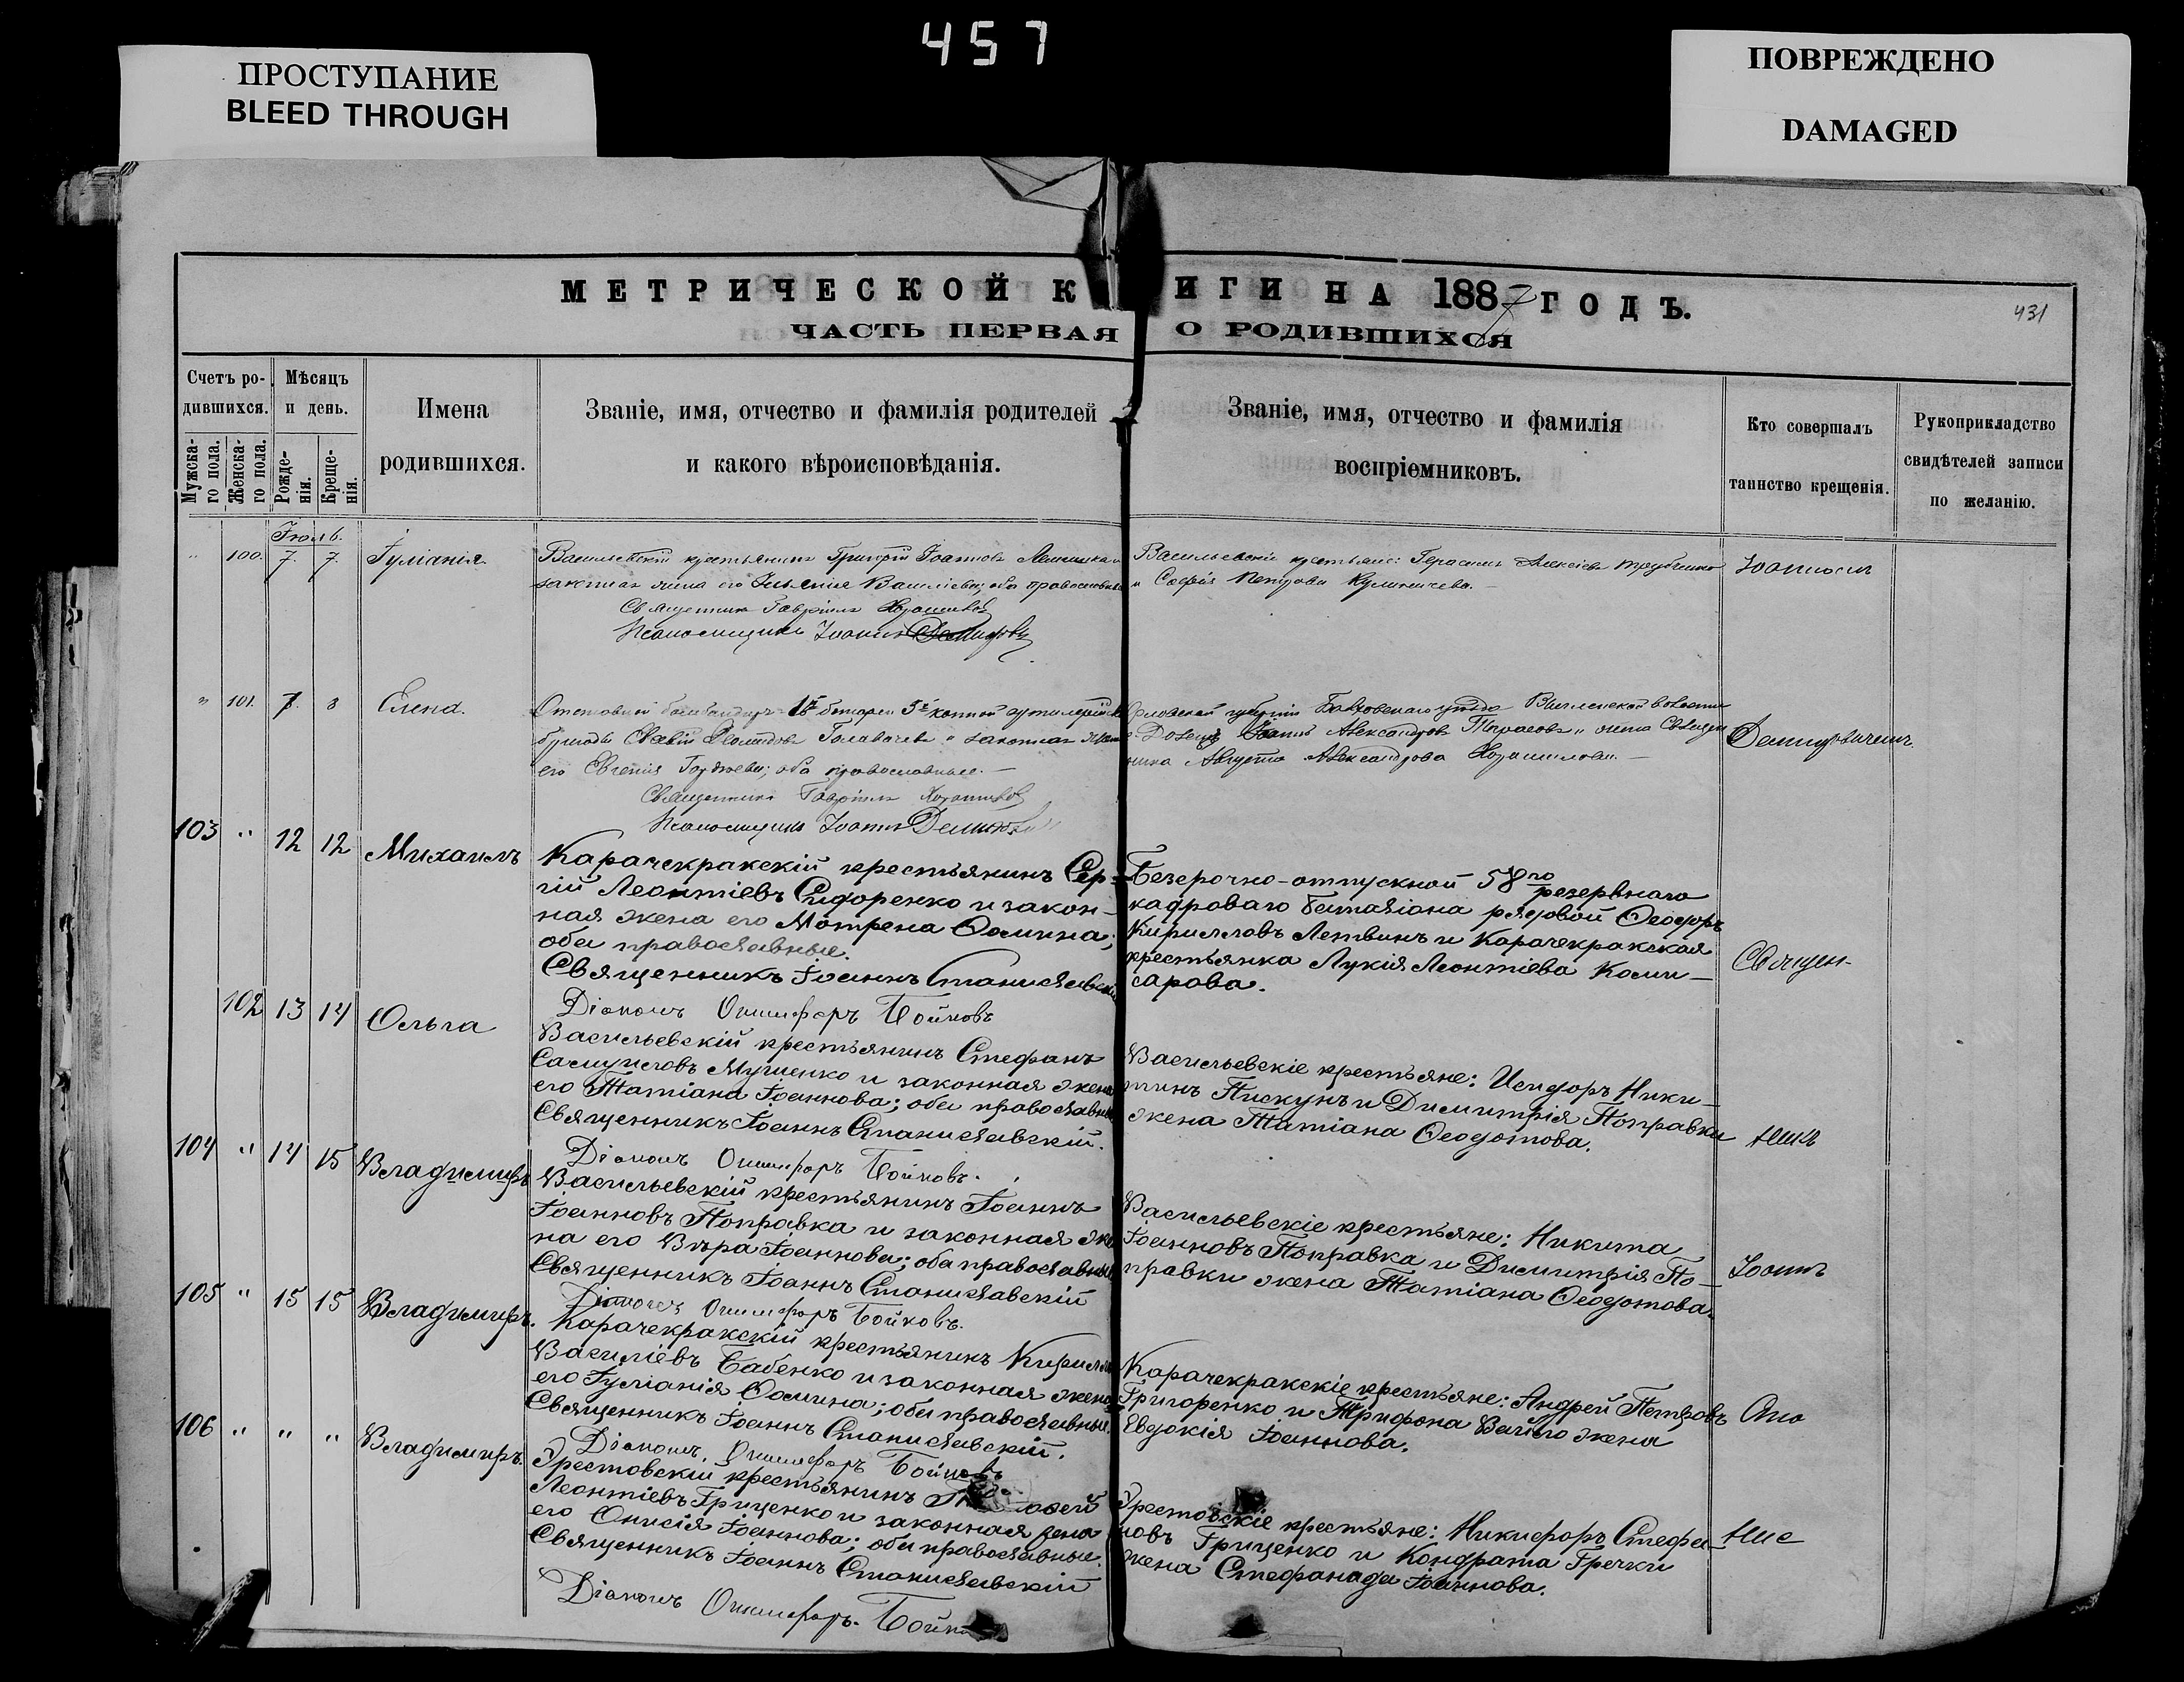 457
ПРОСТУПАНИЕ
BLEED THROUGH
ПОВРЕЖДЕНО
DAMAGED
МЕТРИЧЕСКОЙ К ИГИ НА 1887 ГОДЪ.
431
ЧАСТЬ ПЕРВАЯ О РОДИВШИХСЯ
Счетъ ро-
дившихся.
Мужска-
го пола.
Женска-
го пола.
Мѣсяцъ
и день.
Рожде-
нія.
Креще-
нія.
Имена
родившихся.
Званіе, имя, отчество и фамилія родителей
и какого вѣроисповѣданія.
Званіе, имя, отчество и фамилія
воспріемниковъ.
Кто совершалъ
таинство крещенія.
Рукоприкладство
свидѣтелей записи
по желанію.
Іюль
" 100. 7. 7. Іуліанія
Васильевскій крестьянинъ Григорій Іоанновъ
законная жена его Васильева, оба православные
Священникъ Гавріилъ
Псаломщикъ Іоаннъ
Васильевскіе крестьяне: Герасимъ Алексіевъ
и Софія Петрова
Іоанномъ
" 101. 7. 8 Елена.
Отставной бомбардиръ батареи 5й конной артилерійской
бригады и законная жена
его Евгенія оба православные.
Священникъ Гавріилъ
Псаломщикъ Іоаннъ
Орловской губерніи уѣзда волости
Іоаннъ Александровъ Тарасовъ и жена Священ
ника Августа Александрова
103 " 12 12 Михаилъ
Карачекракскій крестьянинъ Сер-
гій Леонтіевъ Сидоренко и закон-
ная жена его Мотрена Ѳомина;
оба православные.
Священникъ Іоаннъ Станиславскій
Діаконъ Онисифоръ Бойковъ
Безсрочно-отпускной 58го резервнаго
кадроваго баталіона рядовой Ѳеодоръ
Кирилловъ Летвинъ и Карачекракская
крестьянка Лукія Леонтіева Коми-
сарова.
Священ-
102 13 14 Ольга
Васильевскій крестьянинъ Стефанъ
Самуиловъ и законная жена
его Татіана Іоаннова; оба православные
Священникъ Іоаннъ Станиславскій.
Діаконъ Онисифоръ Бойковъ.
Васильевскіе крестьяне: Исидоръ Ники-
тинъ Пискунъ и Димитрія Поправки
жена Татіана Ѳеодотова.
никъ
104 " 14 15 Владимиръ
Васильевскій крестьянинъ Іоаннъ
Іоанновъ Поправка и законная же
на его Вѣра Іоаннова; оба православные
Священникъ Іоаннъ Станиславскій
Діаконъ Онисифоръ Бойковъ.
Васильевскіе крестьяне: Никита
Іоанновъ Поправка и Димитрія По-
правки жена Татіана Ѳеодотова.
Іоаннъ
105 " 15 15 Владимиръ.
Карачекракскій крестьянинъ Кириллъ
Василіевъ Бабенко и законная жена
его Іуліанія Ѳомина; оба православные.
Священникъ Іоаннъ Станиславскій.
Діаконъ Онисифоръ Бойковъ
Карачекракскіе крестьяне: Андрей Петровъ
Григоренко и Трифона жена
Евдокія Іоаннова.
Ста
106 " " " Владимиръ.
Эрестовскій крестьянинъ
Леонтіевъ Гриценко и законная жена
его Онисія Іоаннова; оба православные.
Священникъ Іоаннъ Станиславскій
Діаконъ Онисифоръ
Эрестовскіе крестьяне: Никифоръ Стефа-
новъ Гриценко и Кондрата Гречки
жена Стефанида Іоаннова.